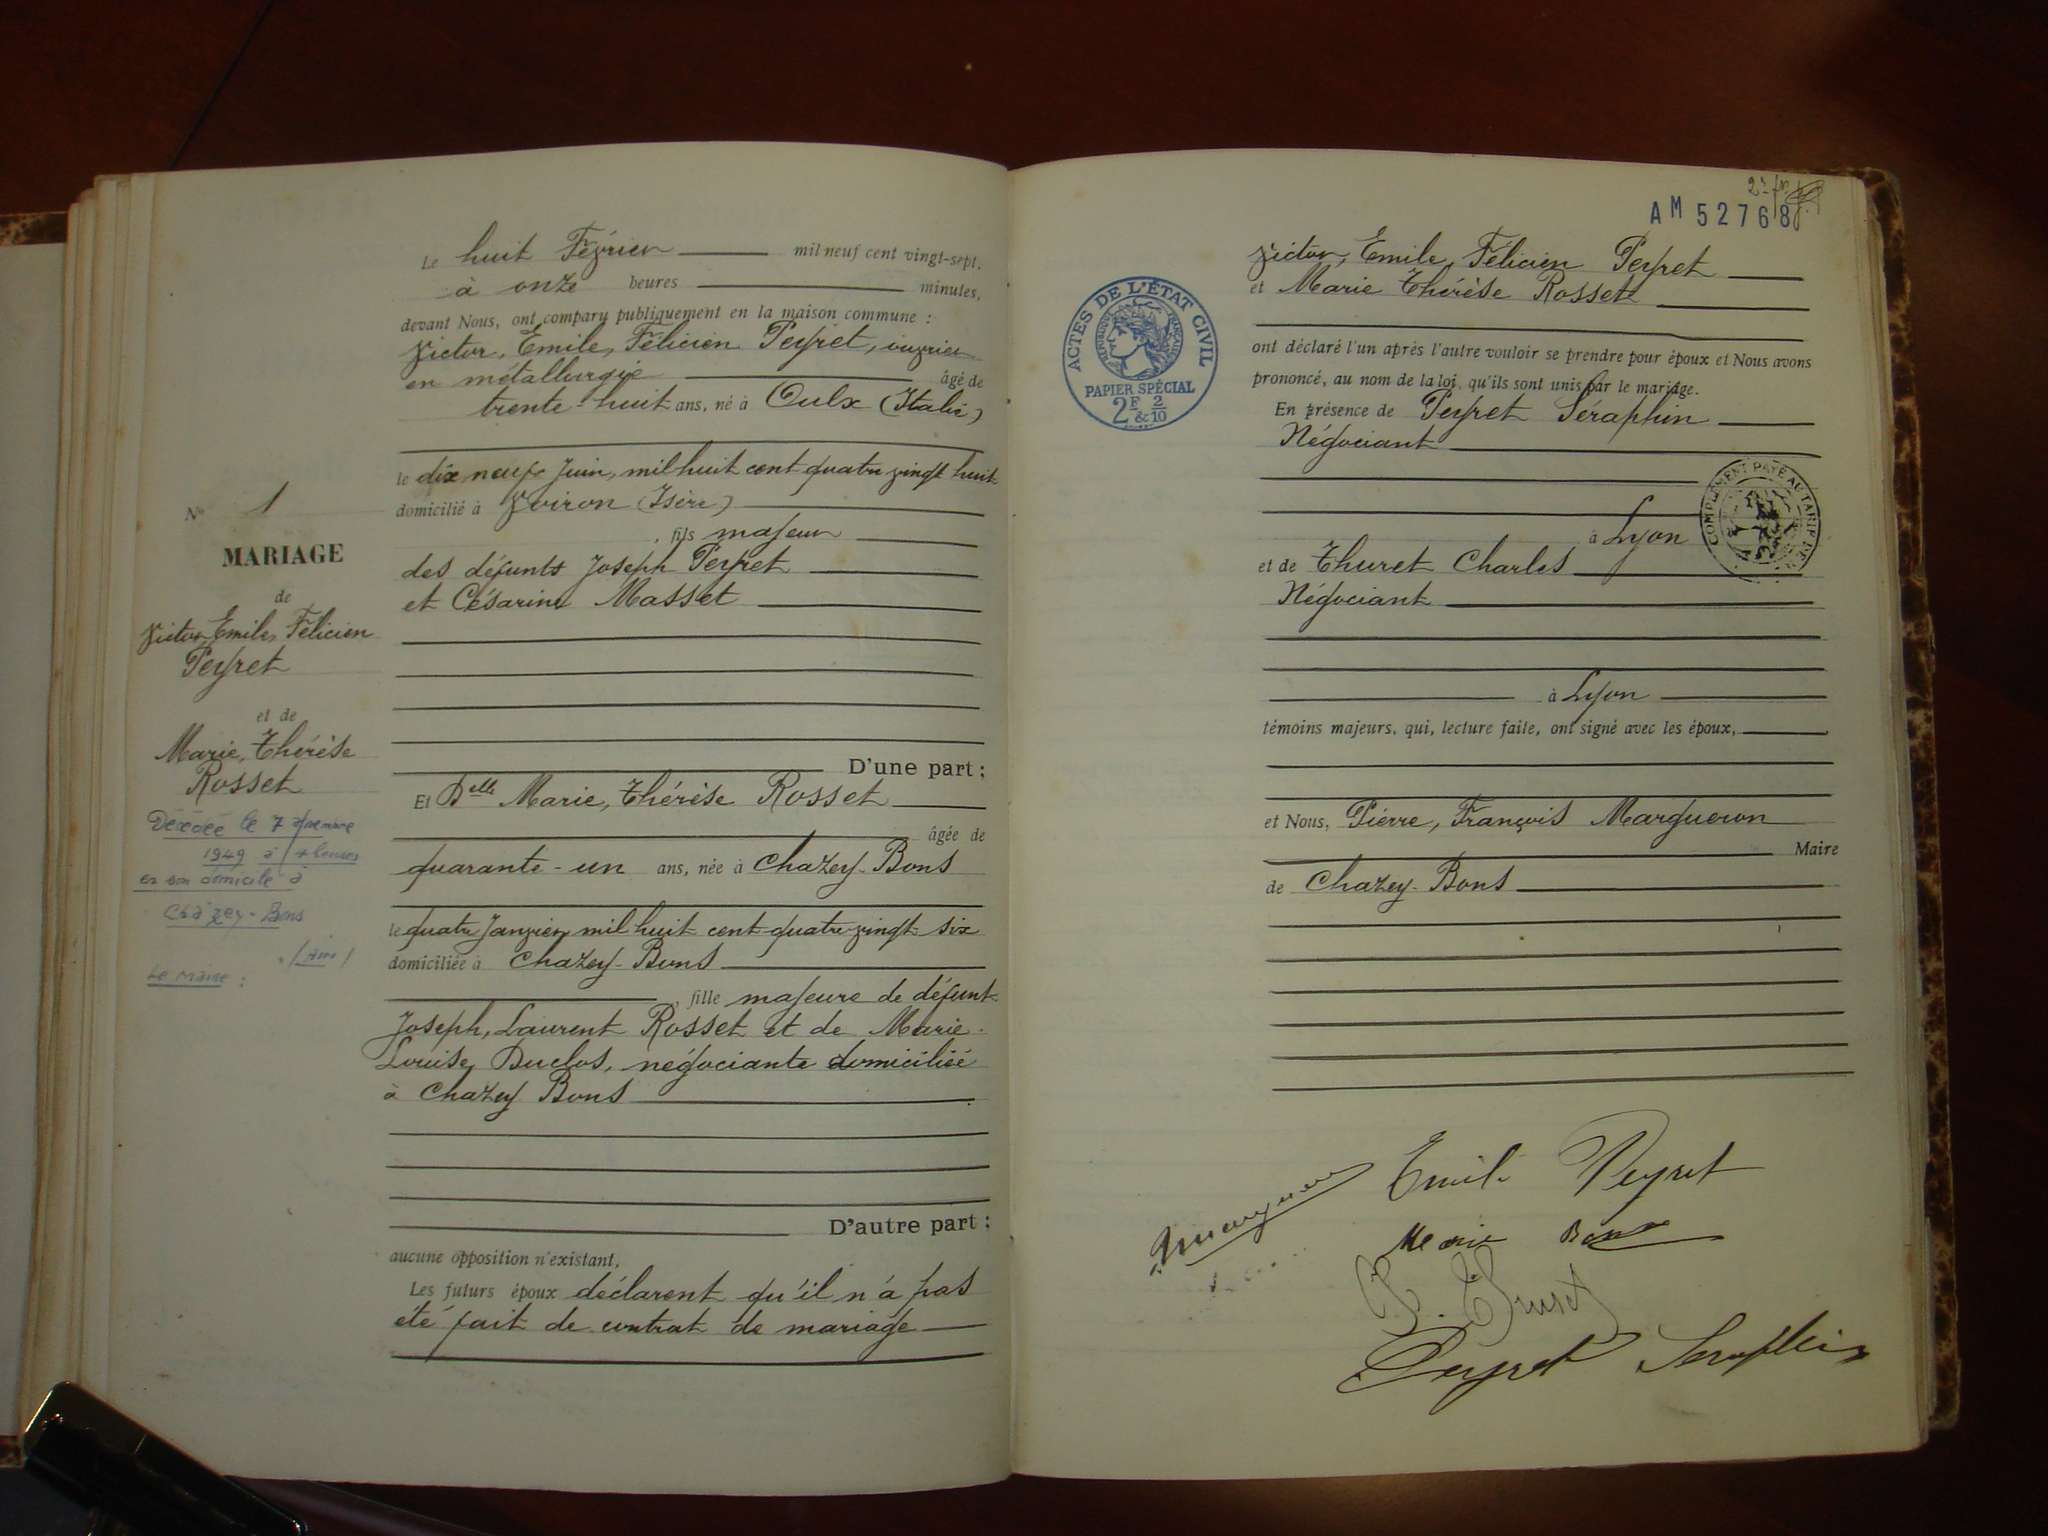 Le huit Février mil neuf cent vingt-sept,
à onze heures minutes,
devant Nous, ont compary publiquement en la maison commune :
Victor, Emile, Félicien Peyret, ouvrier
en métallurgie âgé de
trente-huit ans, né à Oulx (Italie)
le dix neuf Juin, mil huit cent quatre vingt huit
domicilié à Voiron (Isère)
, fils majeur
des défunts Joseph Peyret
et Césarine Masset
D'une part ;
Et Delle Marie, Thérèse Rosset
âgée de
quarante-un ans, née à Chazey-Bons
le quatre Janvier, mil huit cent quatre vingt six
domiciliée à Chazey-Bons
, fille majeure de défunt
Joseph, Laurent Rosset et de Marie
Louise, Duclos, négociante domiciliée
à Chazey Bons
D'autre part :
aucune opposition n'existant,
Les futurs époux déclarent qu'il n'a pas
été fait de contrat de mariage
N° 1
MARIAGE
de
Victor, Emile, Félicien
Peyret
et de
Marie, Thérèse
Rosset
Décédée le 7
1949 à heures
en son domicile à
Chazey-Bons
(Ain)
Le Maire :
AM 52768
ACTES DE L'ÉTAT CIVIL
RÉPUBLIQUE FRANÇAISE
PAPIER SPÉCIAL
2F & 2/10
Victor, Emile, Félicien Peyret
et Marie Thérèse Rosset
ont déclaré l'un après l'autre vouloir se prendre pour époux et Nous avons
prononcé, au nom de la loi, qu'ils sont unis par le mariage.
En présence de Peyret Séraphin
Négociant
COMPLÉMENT PAYÉ AU TARIF DE
à Lyon
et de Thuret Charles
Négociant
à Lyon
témoins majeurs, qui, lecture faite, ont signé avec les époux,
et Nous, Pierre, François Margueron
Maire
de Chazey-Bons
Emile Peyret
Margueron
Marie
C. Thuret
Peyret Séraphin